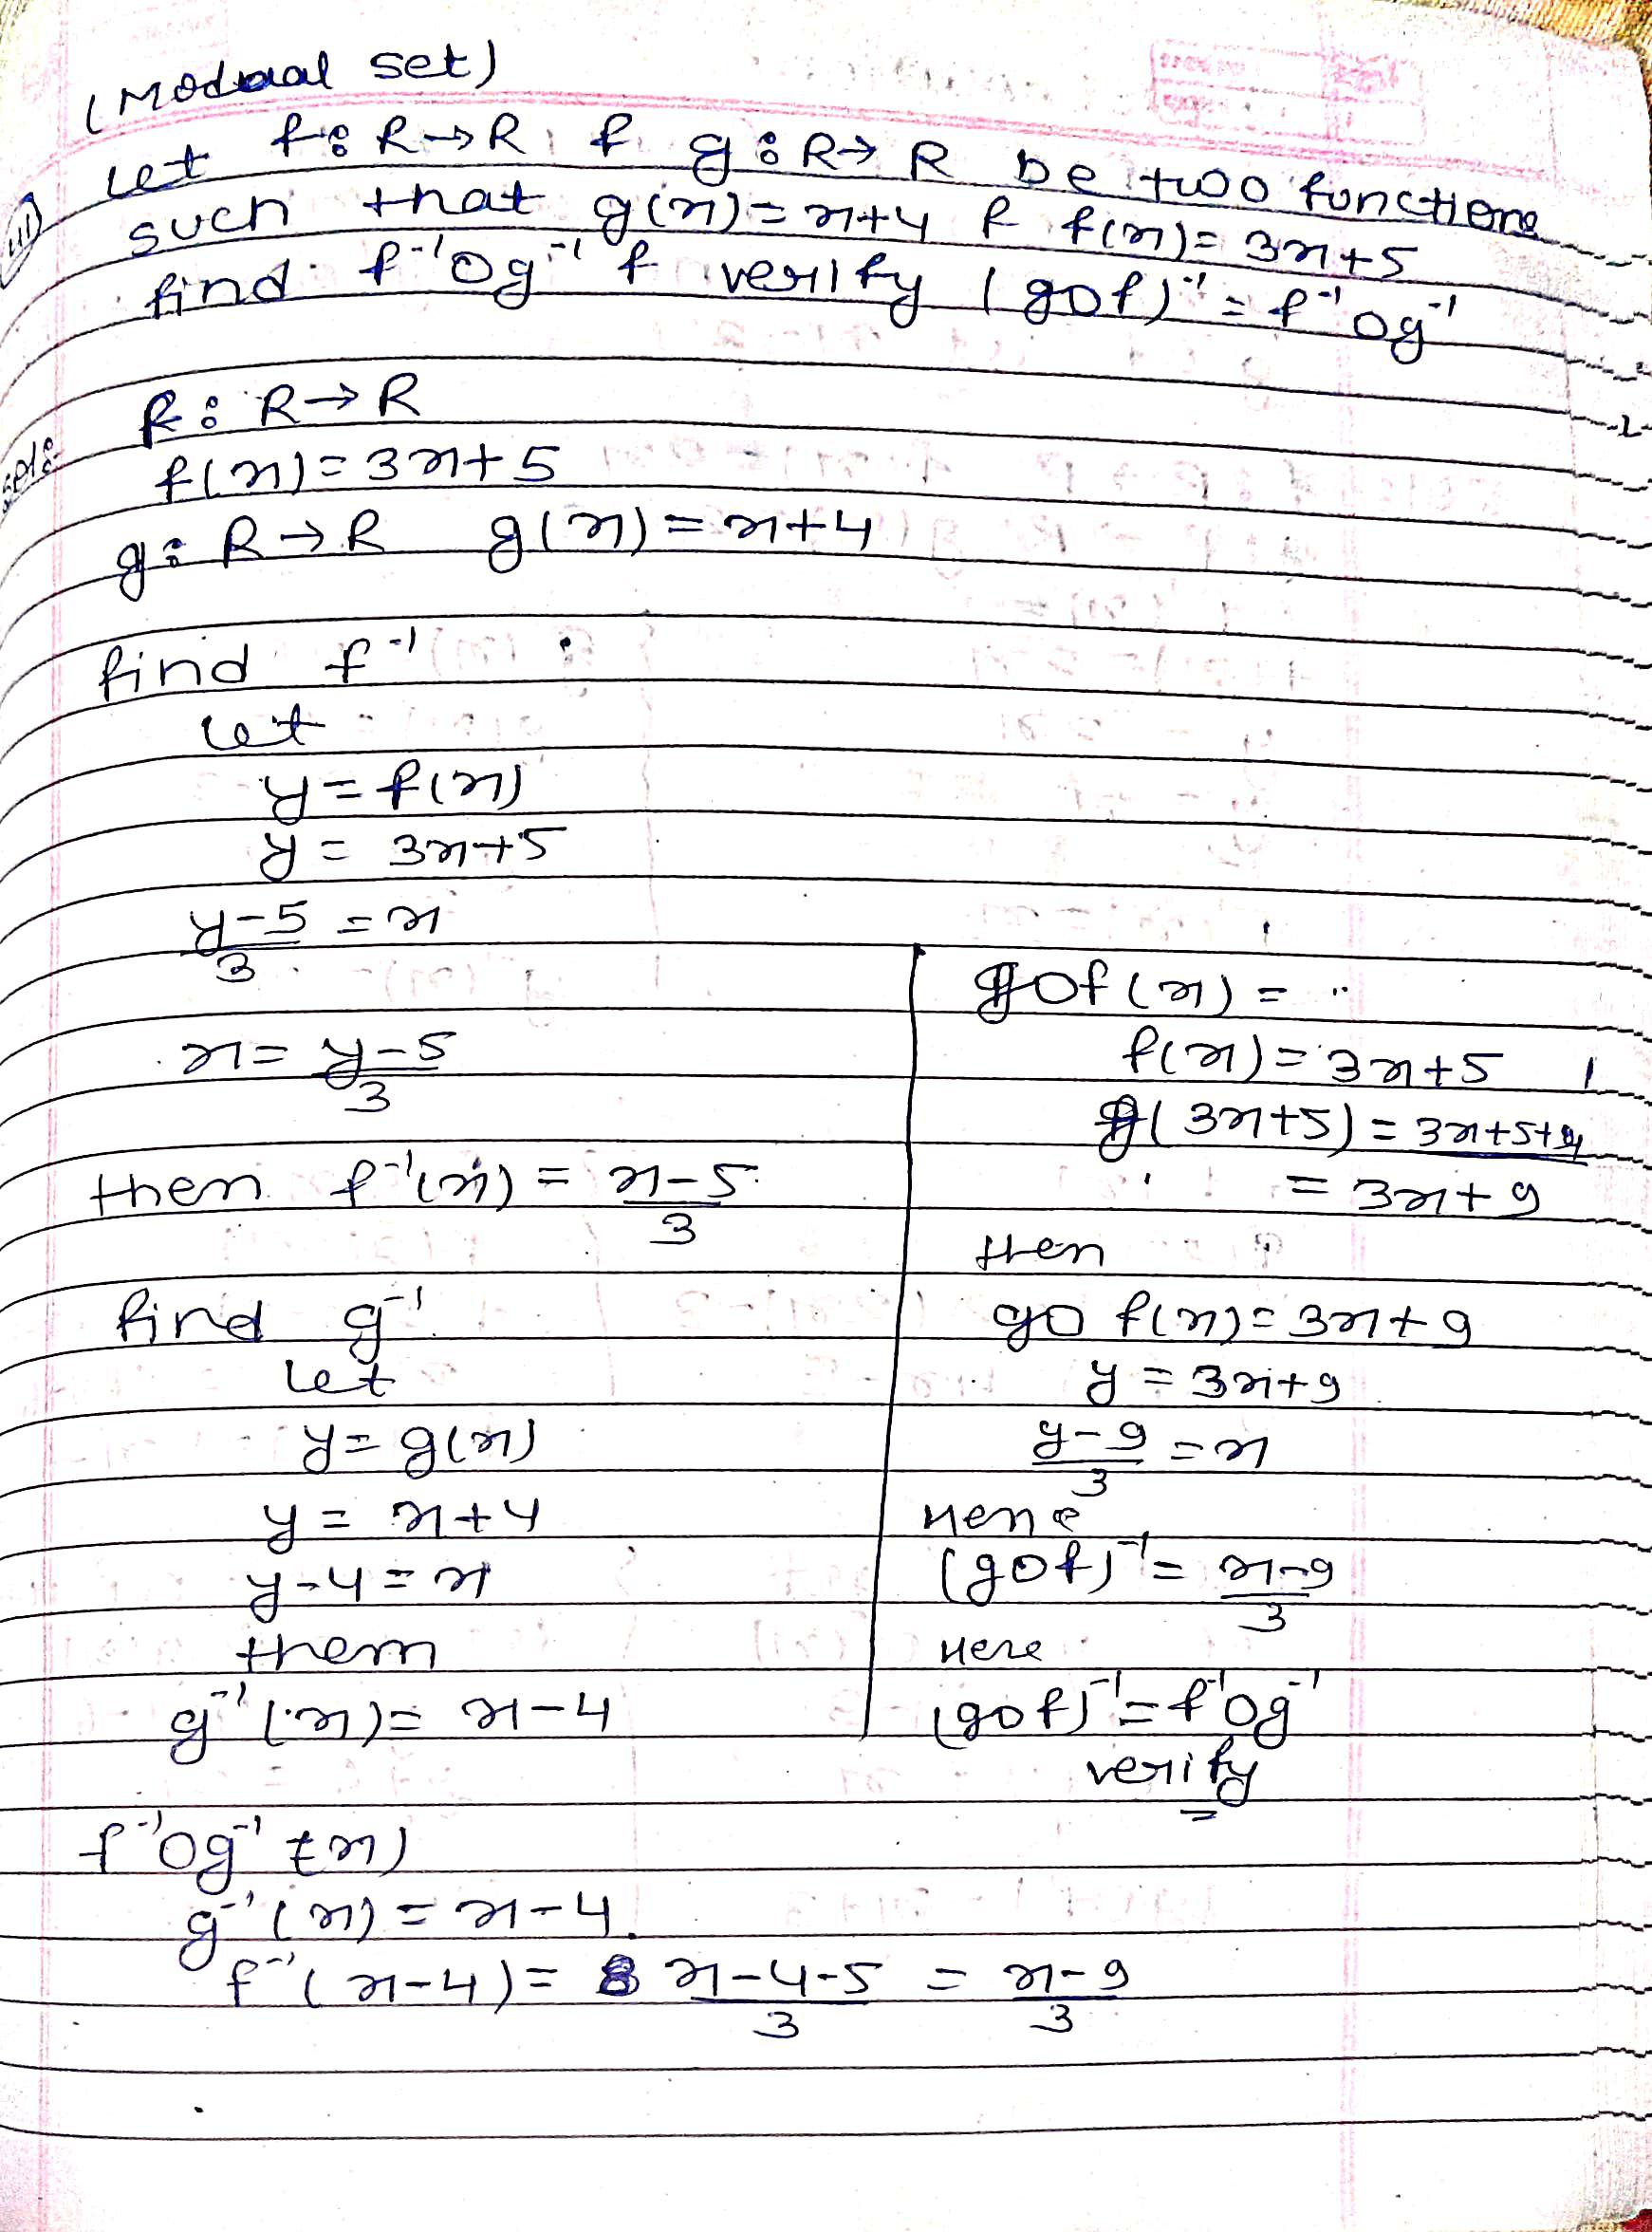 (Modaal set)
(11) Let f: R→R & g: R→R be two functions
such that g(x)=x+4 & f(x)=3x+5
find f⁻¹og⁻¹ & verify (gof)⁻¹ = f⁻¹og⁻¹
sol: f: R→R
f(x)=3x+5
g: R→R g(x)=x+4
find f⁻¹
let
y=f(x)
y= 3x+5
y-5/3 = x
x= y-5/3
then f⁻¹(x) = x-5/3
find g⁻¹
let
y=g(x)
y= x+4
y-4=x
them
g⁻¹(x)= x-4
f⁻¹og⁻¹(x)
g⁻¹(x)=x-4
f⁻¹(x-4)= x-4-5/3 = x-9/3
gof(x)=
f(x)=3x+5
g(3x+5)=3x+5+4
=3x+9
then
go f(x)=3x+9
y=3x+9
y-9/3 = x
Hene
(gof)⁻¹= x-9/3
Here
(gof)⁻¹=f⁻¹og⁻¹
verify